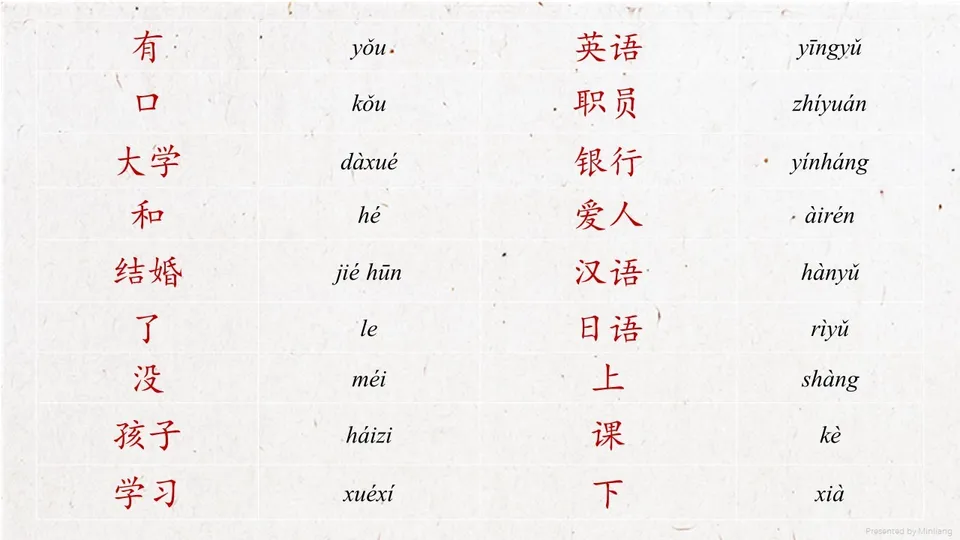 有 yǒu 英语 yīngyǔ
口 kǒu 职员 zhíyuán
大学 dàxué 银行 yínháng
和 hé 爱人 àirén
结婚 jié hūn 汉语 hànyǔ
了 le 日语 rìyǔ
没 méi 上 shàng
孩子 háizi 课 kè
学习 xuéxí 下 xià
Presented by Minliang